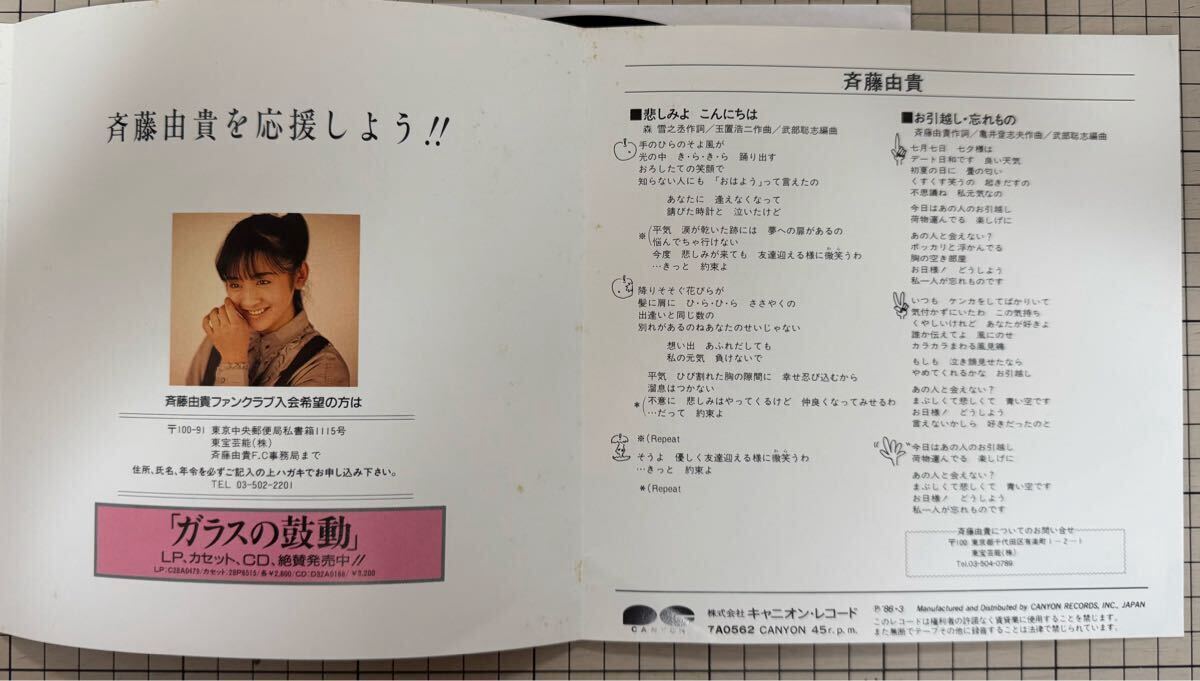 斉藤由貴を応援しよう!!
斉藤由貴ファンクラブ入会希望の方は
〒100-91 東京中央郵便局私書箱1115号
東宝芸能(株)
斉藤由貴F.C事務局まで
住所、氏名、年令を必ずご記入の上ハガキでお申し込み下さい。
TEL 03-502-2201
「ガラスの鼓動」
LP、カセット、CD、絶賛発売中!!
LP:C28A0479/カセット:28P6515/各¥2,800/CD:D32A0168/¥3,200
斉藤由貴
■悲しみよ こんにちは
森 雪之丞作詞/玉置浩二作曲/武部聡志編曲
手のひらのそよ風が
光の中 き・ら・き・ら 踊り出す
おろしたての笑顔で
知らない人にも 「おはよう」って言えたの
あなたに 逢えなくなって
錆びた時計と 泣いたけど
※(平気 涙が乾いた跡には 夢への扉があるの
悩んでちゃ行けない
今度 悲しみが来ても 友達迎える様に微笑うわ
わら
…きっと 約束よ
降りそそぐ花びらが
髪に肩に ひ・ら・ひ・ら ささやくの
出逢いと同じ数の
別れがあるのねあなたのせいじゃない
想い出 あふれだしても
私の元気 負けないで
平気 ひび割れた胸の隙間に 幸せ忍び込むから
溜息はつかない
*(不意に 悲しみはやってくるけど 仲良くなってみせるわ
…だって 約束よ
※(Repeat
そうよ 優しく友達迎える様に微笑うわ
わら
…きっと 約束よ
*(Repeat
■お引越し・忘れもの
斉藤由貴作詞/亀井登志夫作曲/武部聡志編曲
七月七日 七夕様は
デート日和です 良い天気
初夏の日に 畳の匂い
くすくす笑うの 起きだすの
不思議ね 私元気なの
今日はあの人のお引越し
荷物運んでる 楽しげに
あの人と会えない?
ポッカリと浮かんでる
胸の空き部屋
お日様! どうしよう
私一人が忘れものです
いつも ケンカをしてばかりいて
気付かずにいたわ この気持ち
くやしいけれど あなたが好きよ
誰か伝えてよ 風にのせ
カラカラまわる風見鶏
もしも 泣き顔見せたなら
やめてくれるかな お引越し
あの人と会えない?
まぶしくて悲しくて 青い空です
お日様! どうしよう
言えないかしら 好きだったのと
今日はあの人のお引越し
荷物運んでる 楽しげに
あの人と会えない?
まぶしくて悲しくて 青い空です
お日様! どうしよう
私一人が忘れものです
斉藤由貴についてのお問い合せ
〒100 東京都千代田区有楽町1-2-1
東宝芸能(株)
Tel.03-504-0789
CANYON
株式会社 キャニオン・レコード
7A0562 CANYON 45r.p.m.
Ⓟ'86・3 Manufactured and Distributed by CANYON RECORDS, INC., JAPAN
このレコードは権利者の許諾なく賃貸業に使用することを禁じます。
また無断でテープその他に録音することは法律で禁じられています。